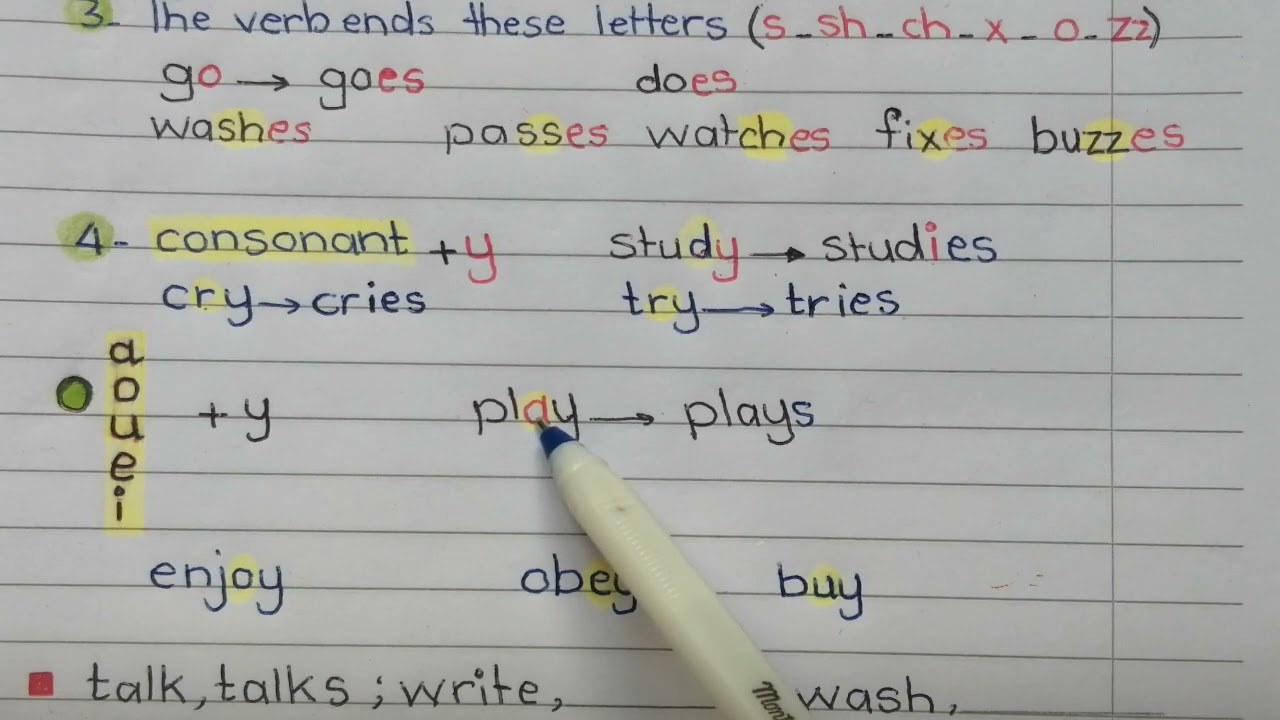 3- The verb ends these letters (s-sh-ch-x-o-zz)
go → goes does
washes passes watches fixes buzzes
4- consonant + y study → studies
cry → cries try → tries
a
o
u
e
i
+ y play → plays
enjoy obey buy
talk, talks; write, wash,